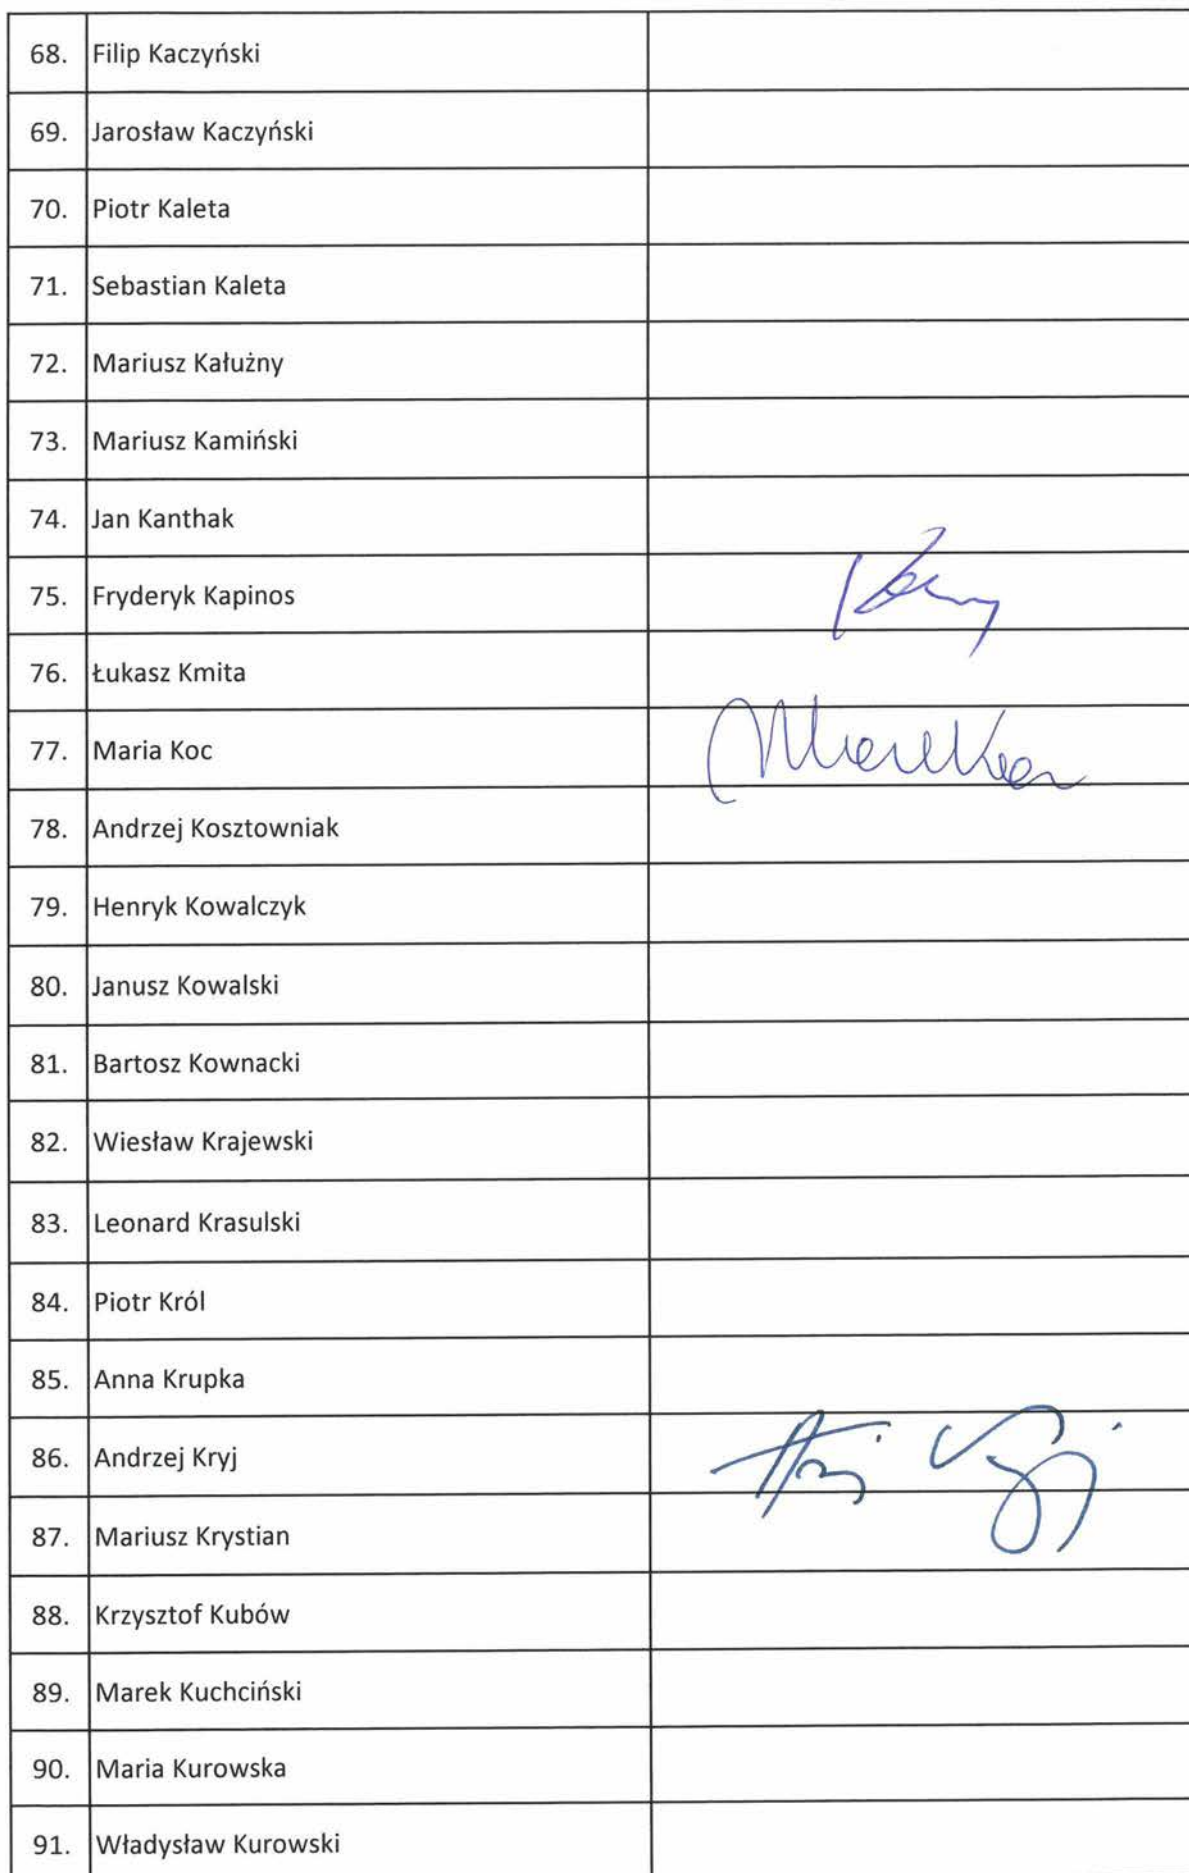 68. Filip Kaczyński
69. Jarosław Kaczyński
70. Piotr Kaleta
71. Sebastian Kaleta
72. Mariusz Kałużny
73. Mariusz Kamiński
74. Jan Kanthak
75. Fryderyk Kapinos
76. Łukasz Kmita
77. Maria Koc
78. Andrzej Kosztowniak
79. Henryk Kowalczyk
80. Janusz Kowalski
81. Bartosz Kownacki
82. Wiesław Krajewski
83. Leonard Krasulski
84. Piotr Król
85. Anna Krupka
86. Andrzej Kryj
87. Mariusz Krystian
88. Krzysztof Kubów
89. Marek Kuchciński
90. Maria Kurowska
91. Władysław Kurowski